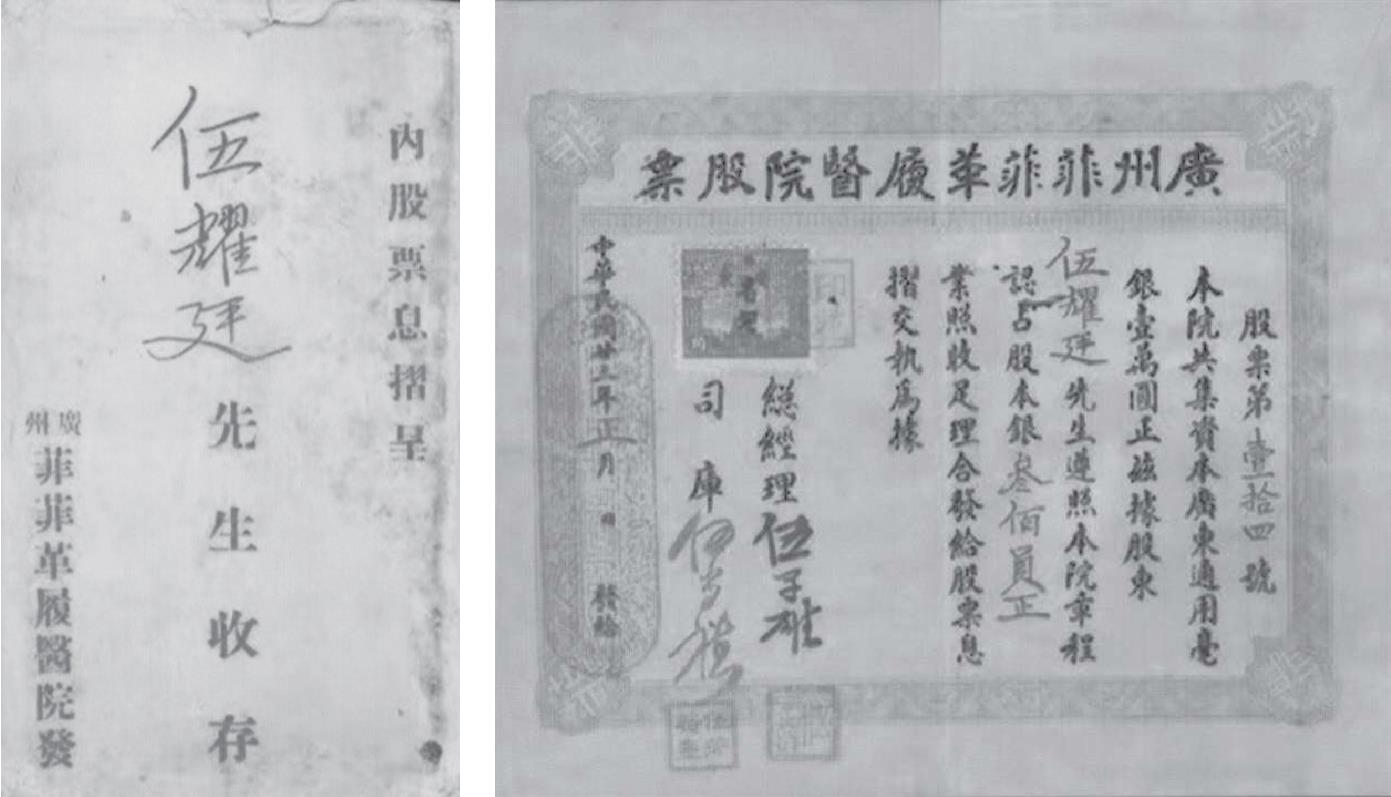 內股票息摺呈
伍耀廷先生收存
廣州
菲菲革履醫院發
廣州菲菲革履醫院股票
股票第壹拾四號
本院共集資本廣東通用毫
銀壹萬圓正茲據股東
伍耀廷先生遵照本院章程
認占股本銀叁佰員正
業照收足理合發給股票息
摺交執爲據
總經理伍子雄
司庫
中華民國廿三年正月 日發給
菲
菲